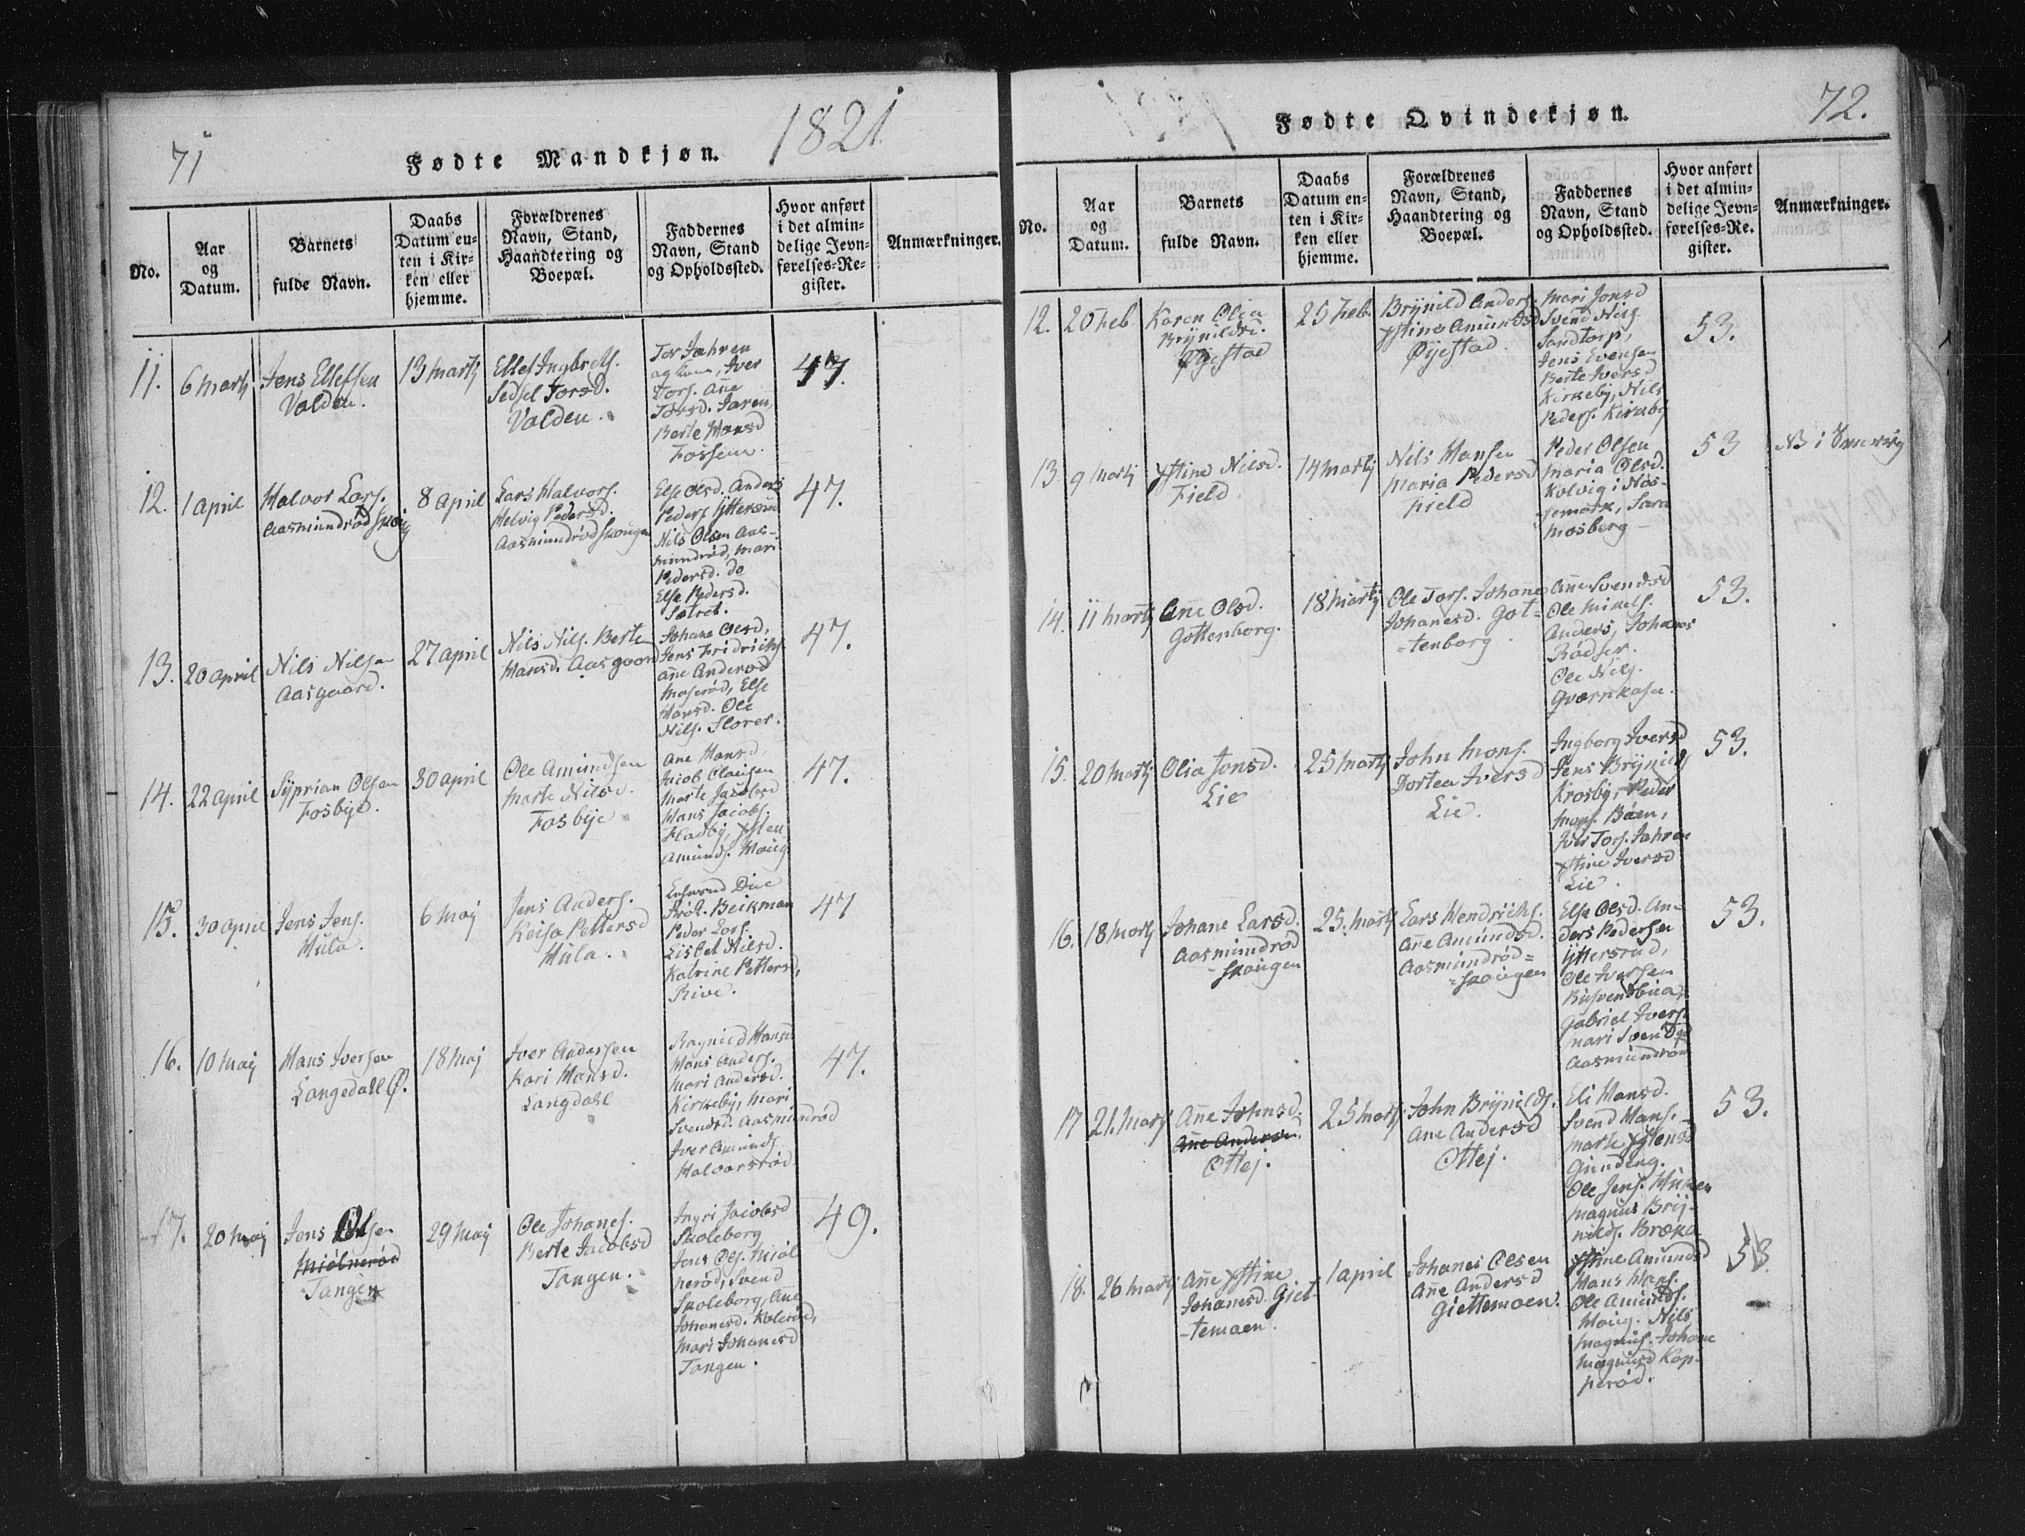 71
Fødte Mandkjøn.
1821
No.
Aar
og
Datum.
Barnets
fulde Navn.
Daabs
Datum en-
ten i Kir-
ken eller
hjemme.
Forældrenes
Navn, Stand,
Haandtering og
Boepæl.
Faddernes
Navn, Stand
og Opholdssted.
Hvor anført
i det almin-
delige Jevn-
førelses-Re-
gister.
Anmærkninger.
11.
6 Martj
Jens Ellefsen
Valden.
13 martj
Ellef Ingbretss.
Sedsel Torsd.
Valden.
Tor Jahren
og kone, Iver
Torss. Ane
Torsd. Jaren,
Berte Hansd
Fossem.
47.
12.
1 april
Halvor Larss.
Aasmundrød Skoug
8 april
Lars Halvors.
Helvig Pedersd.
Aasmundrød Skougen
Else Olsd. Anders
Peders Ytterrud
Nils Olsen Aas-
mundrød, Mari
Pedersd. do
Else Pedersd.
Sætret.
47.
13.
20 april
Nils Nilsen
Aasgaard.
27 april
Nils Nils. Berte
Hansd. Aasgaard
Johane Olsd,
Jens Fridrichs.
Ane Andersd
Moserød, Else
Hansd. Ole
Nils. Slorer.
47.
14.
22 april
Syprian Olsen
Fosbye.
30 april
Ole Amundsen
Marte Nilsd.
Fosbye
Ane Hansd.
Jacob Clausen
Marte Jacobsd
Hans Jacobs.
Fladby, Hsten
Amunds. Houg.
47.
15.
30 april
Jens Jens.
Hula.
6 maj
Jens Anders.
Keisa Pettersd
Hula.
Due
Beikman
Peder Lars.
Lisbet Nilsd.
Katrine Pettersd,
Rive.
47
16.
10 maj
Hans Iversen
Langedahl Ø.
18 maj
Iver Andersen
Kari Hansd.
Langdahl
Ragnild Hansd
Hans Anders.
Mari Andersd.
Kirkeby, Mari
Svendsd. Aasmundrød
Iver Amunds.
Halvorsrød.
47.
17.
20 maj
Jens Olsen
Miølnerød
Tangen
29 maj
Ole Johanes.
Berte Jacobsd
Tangen.
Ingri Jacobsd
Skoleborg
Jens Ols. Miøl-
nerød, Svend
Skoleborg, Ane
Johanesd. Kolerød,
Mari Johanesd
Tangen.
49.
72.
Fødte Qvindekjøn.
No.
Aar
og
Datum.
Barnets
fulde Navn.
Daabs
Datum en-
ten i Kir-
ken eller
hjemme.
Forældrenes
Navn, Stand,
Haandtering og
Boepæl.
Faddernes
Navn, Stand
og Opholdssted.
Hvor anført
i det almin-
delige Jevn-
førelses-Re-
gister.
Anmærkninger.
12.
20 Feb
Karen Olia
Brynildsd.
Øyestad
25 Feb.
Brynild Anders.
Stine Amundsd
Øyestad.
Mari Jonsd
Svend Nils
Sandtorp,
Jens Evensen
Berte Iversd
Kirkeby, Nils
Peders. Kirkeby
53.
13.
9 Martj
Stine Nilsd.
Field.
14 martj
Nils Hansen
Maria Pedersd
Field
Peder Olsen
Maria Olsd.
Kolvig i Nøs-
temark, Sara
Mosberg
53
NB i
14.
11 martj
Ane Olsd.
Gottenborg.
18 martj
Ole Tors. Johane
Johanesd. Got-
-tenborg
Ane Svendsd
Ole Mikels.
Anders, Johanes
Rødser.
Ole Nils.
Qværnkasa.
53.
15.
20 martj
Olia Jonsd.
Lie
25 martj
John Mons.
Dortea Iversd
Lie.
Ingborg Iversd
Jens Brynilds
Krosby, Peder
Mons. Bøen,
Iver Tors. Jahren
Stine Iversd
Lie.
53.
16.
18 martj
Johane Larsd.
Aasmundrød
-Skougen
25. martj
Lars Hendrichs.
Ane Amundsd.
Aasmundrød=
=Skougen
Else Olsd. An-
ders Pedersen
Ytterrud,
Ole Iversen
Gabriel Ivers.
Mari Svendsd
Aasmundrød
53.
17
21. martj
Ane Johnsd.
Ane Andersd.
Ottej.
25 martj
John Brynilds.
Ane Andersd
Ottej.
Eli Hansd.
Svend Hans.
Marte Ystensd
Gundeng.
Ole Jens.
Magnus Bry-
nilds. Bræka
53.
18.
26 martj
Ane Stine
Johanesd. Giet-
-temoen.
1 april
Johanes Olsen
Ane Andersd
Giettemoen.
Stine Amundsd
Hans Hans.
Ole Amunds.
Houg. Nils
Magnus. Johane
Magnusd Kop-
perød.
53.